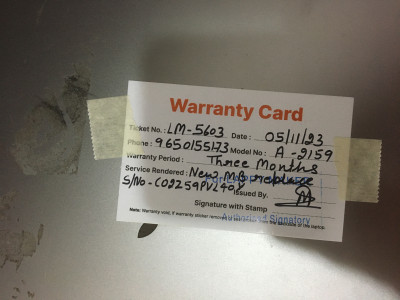 Warranty Card
Ticket No.: LM-5603 Date: 05/11/23
Phone: 9650155173 Model No: A-2159
Warranty Period: Three Months
Service Rendered: New MB
S/No-C02259PVL40Y Issued By.
Signature with Stamp
Authorised Signatory
Note: Warranty void, if warranty sticker removed